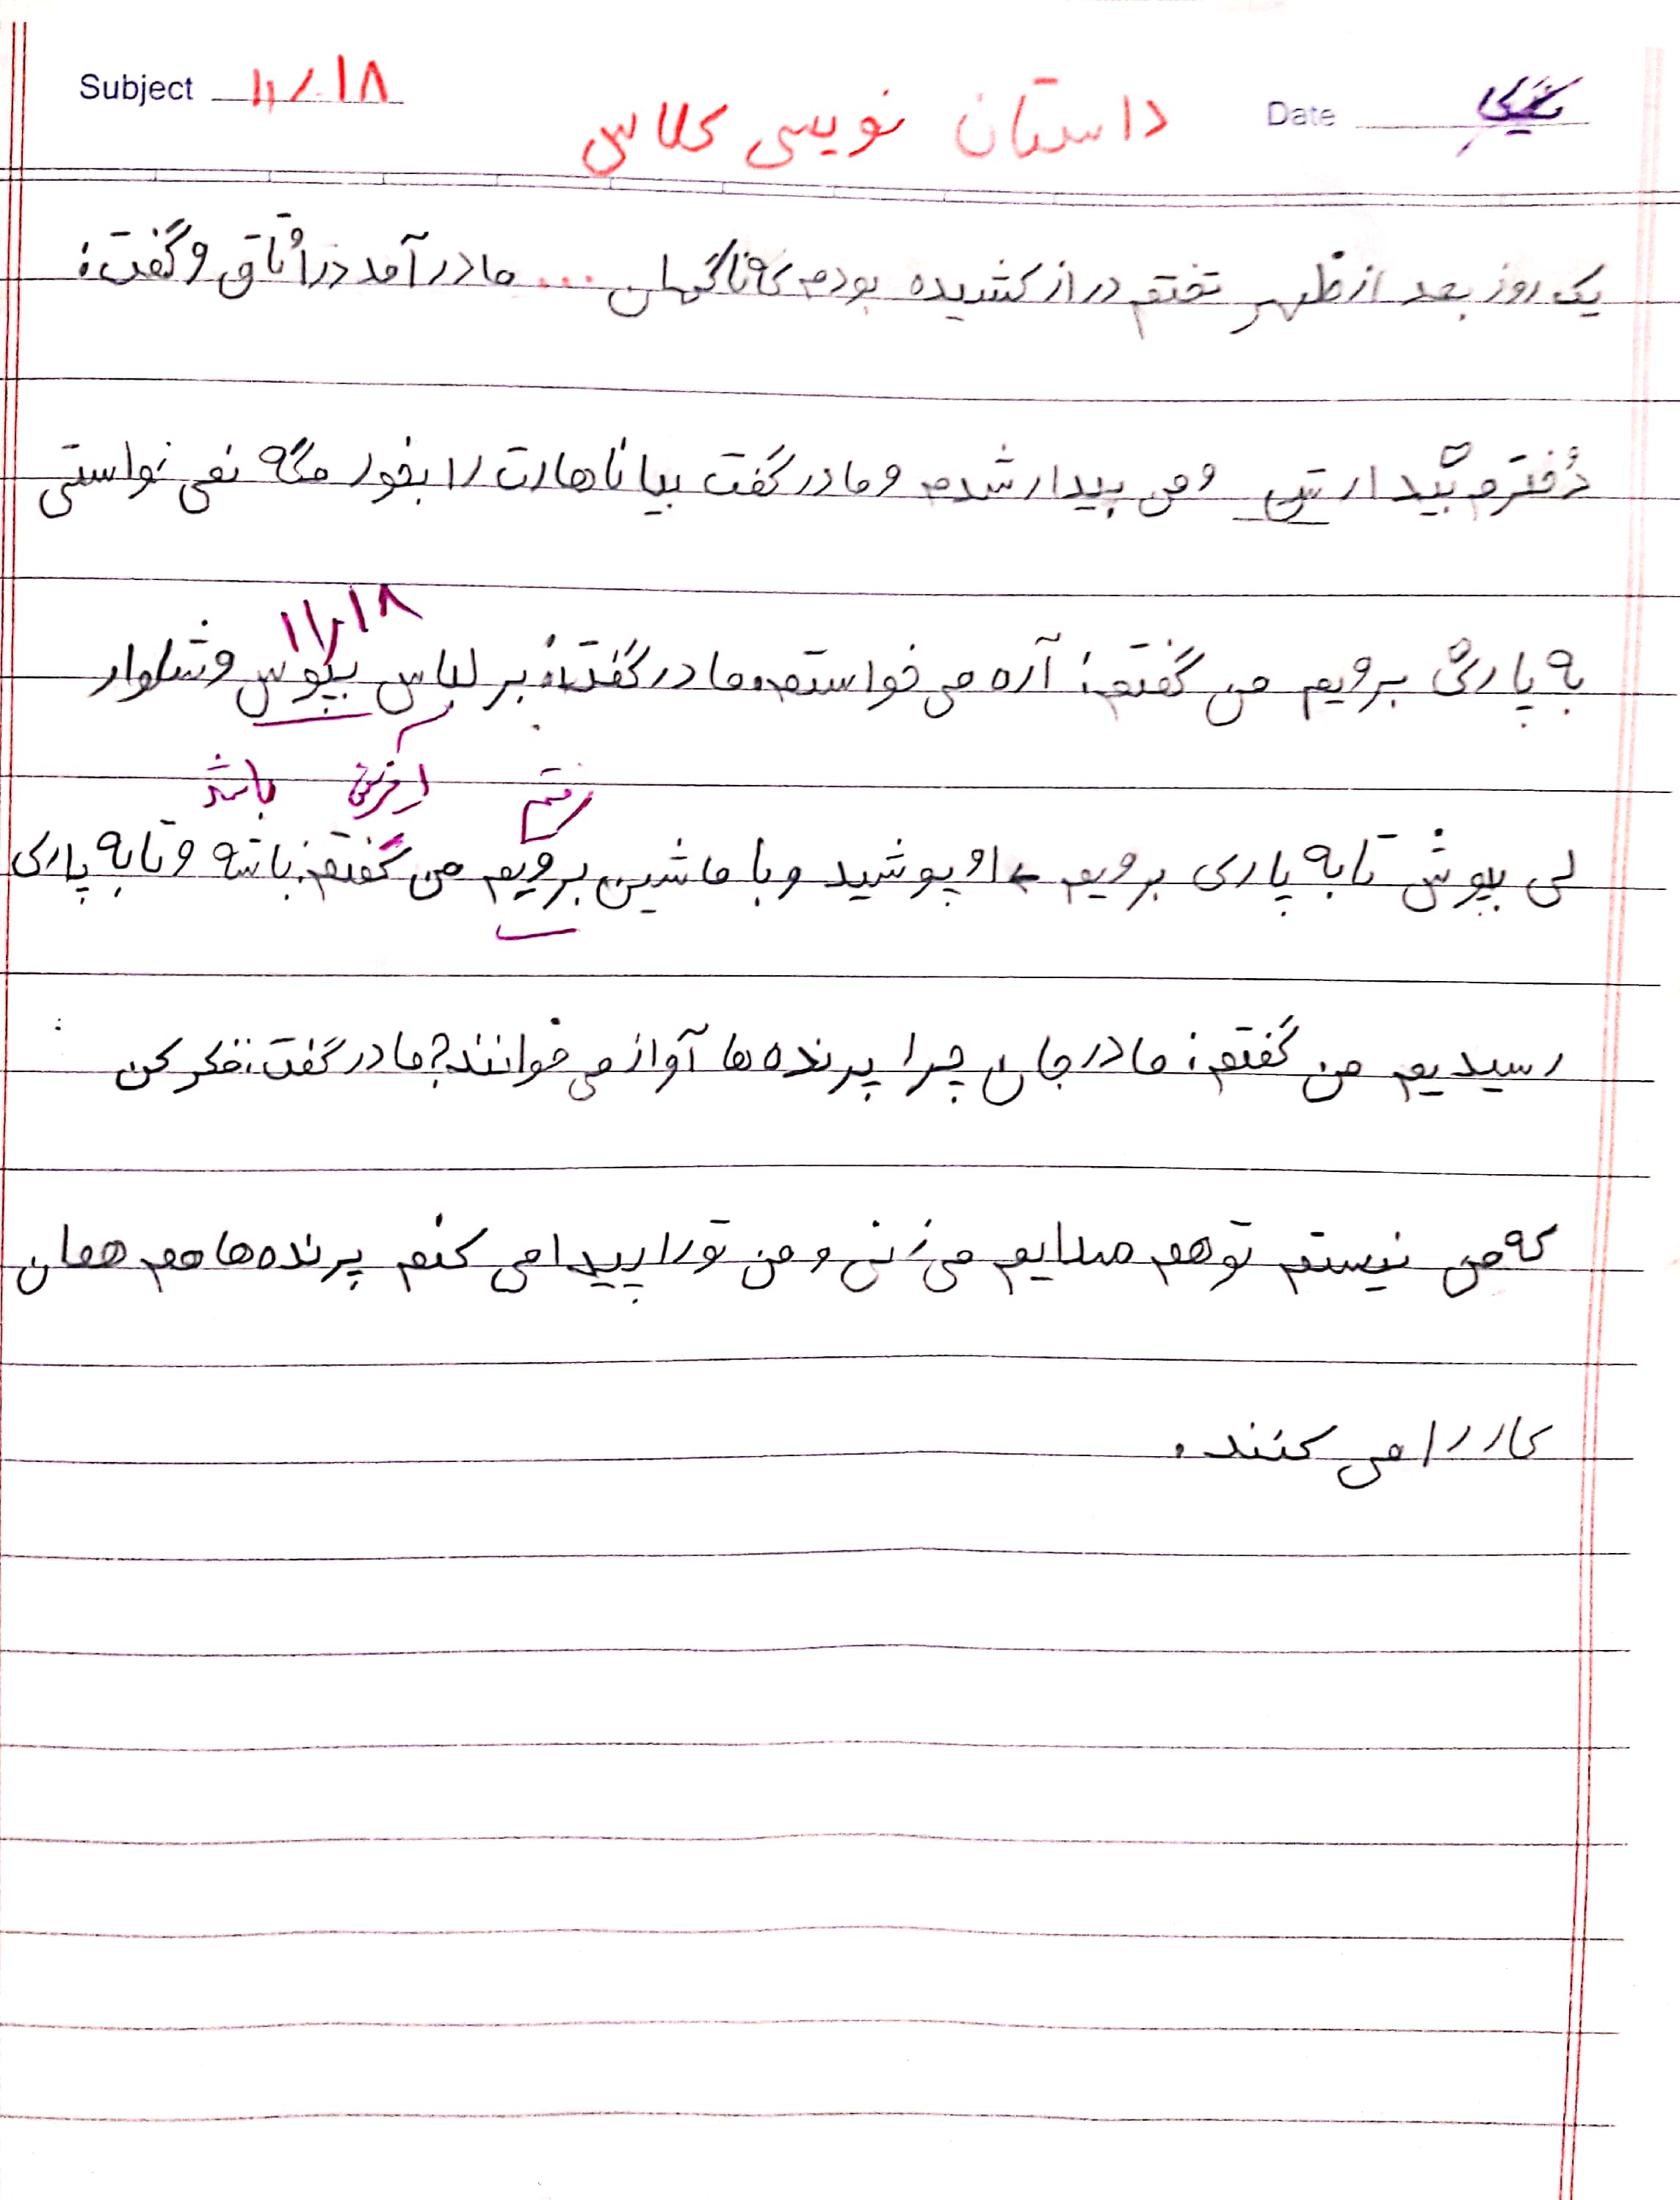 Subject ۱۱/۱۸
Date
داستان نویسی کلاس
یک روز بعد از ظهر تختم دراز کشیده بودم که ناگهان ... مادر آمد در اُتاق و گفت:
دُخترم بیدار شو و من بیدار شدم و مادر گفت بیا ناهارت را بخور مگه نمی خواستی
۱۱/۱۸
به پارک برویم من گفتم: آره می خواستم. مادر گفت: بر لباس بپوس و شلوار
رفتم آفرین باشد
لی بپوش تا به پارک برویم او پوشید و با ماشین برویم من گفتم: باشه و تا به پارک
رسیدیم من گفتم: مادر جان چرا پرنده ها آواز می خوانند؟ مادر گفت: فکر کن
که من نیستم تو هم صدایم می زنی و من تو را پیدا می کنم پرنده ها هم همان
کار را می کنند.